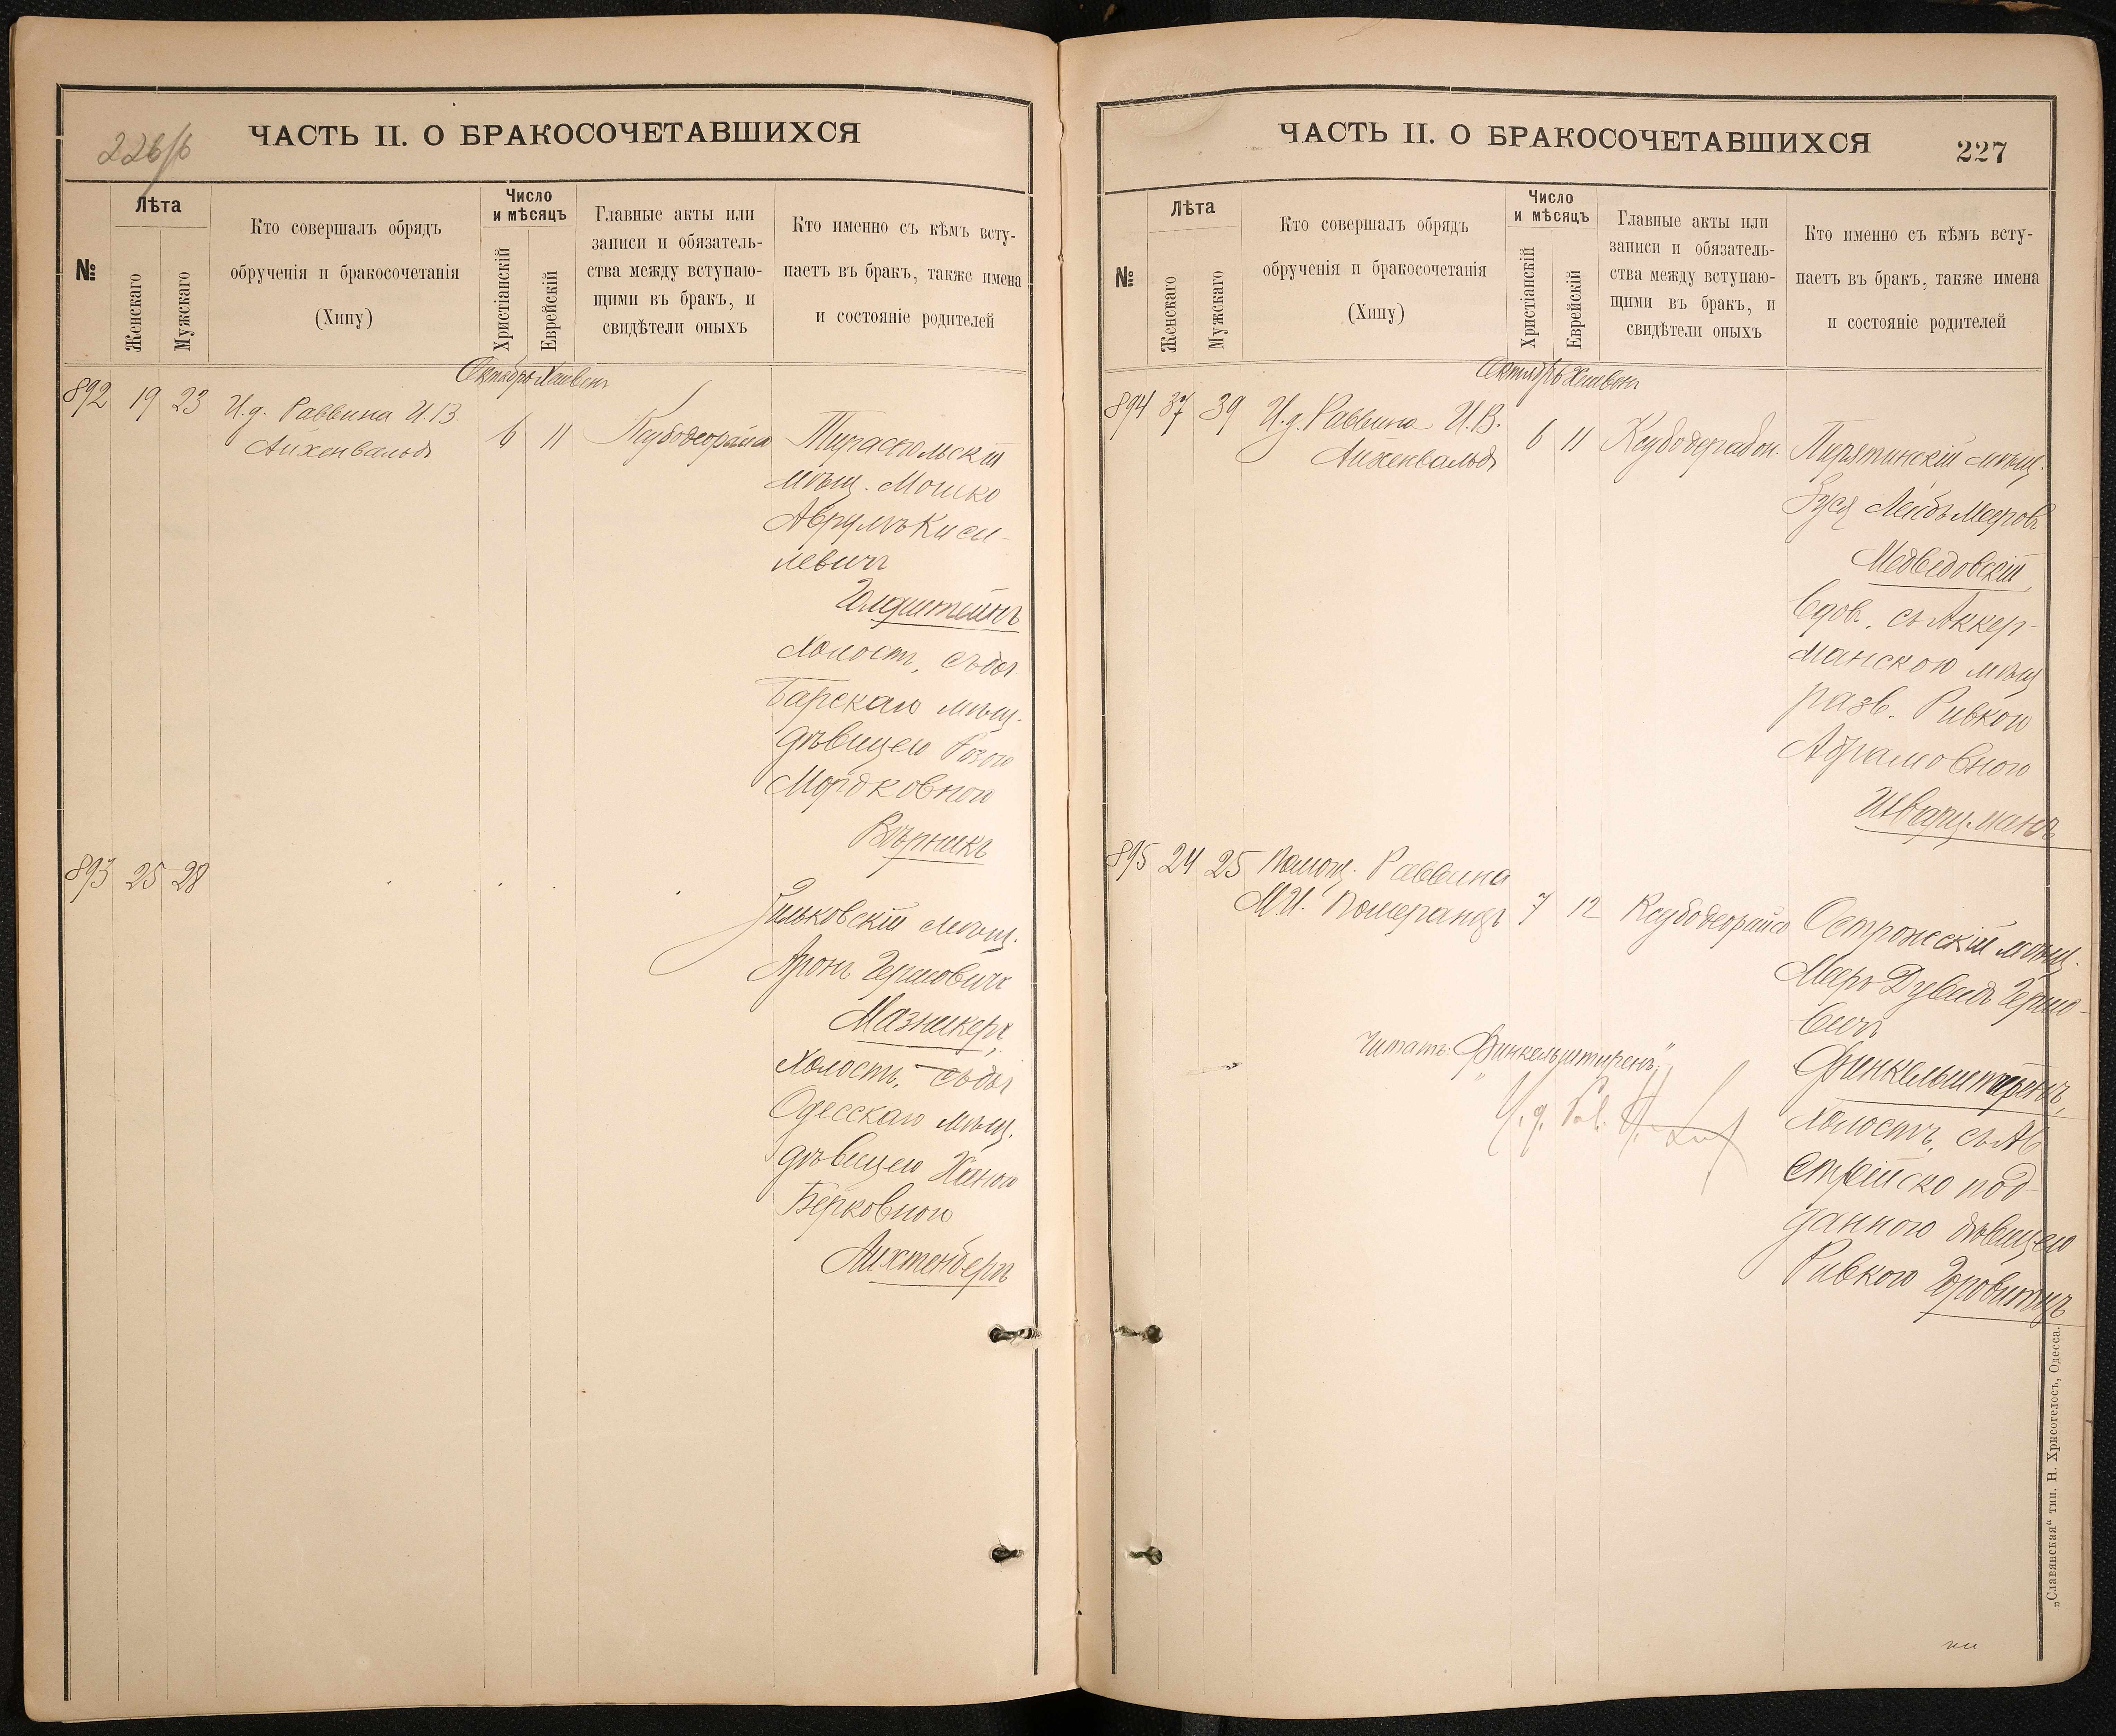 226/б
ЧАСТЬ II. О БРАКОСОЧЕТАВШИХСЯ
№
Лѣта
Женскаго
Мужскаго
Кто совершалъ обрядъ
обрученія и бракосочетанія
(Хипу)
Число
и мѣсяцъ
Христіанскій
Еврейскій
Главные акты или
записи и обязатель-
ства между вступаю-
щими въ бракъ, и
свидѣтели оныхъ
Кто именно съ кѣмъ всту-
паетъ въ бракъ, также имена
и состояніе родителей
Октябрь Хешвенъ
892 19 23 И.д. Раввина И.В.
Айхенвальдъ
6 11
Тираспольскій
мѣщ. Мошко
Аврумъ Киси-
левичъ
Голдштейнъ
холостъ, съ
Барскою мѣщ.
дѣвицею Розою
Мордковною
Вѣрникъ
893 25 28
Зиньковскій мѣщ.
Аронъ Гершовичъ
Мазникеръ,
холостъ, съ
Одесскою мѣщ.
дѣвицею Ханою
Берковною
Лихтенбергъ
ЧАСТЬ II. О БРАКОСОЧЕТАВШИХСЯ
227
№
Лѣта
Женскаго
Мужскаго
Кто совершалъ обрядъ
обрученія и бракосочетанія
(Хипу)
Число
и мѣсяцъ
Христіанскій
Еврейскій
Главные акты или
записи и обязатель-
ства между вступаю-
щими въ бракъ, и
свидѣтели оныхъ
Кто именно съ кѣмъ всту-
паетъ въ бракъ, также имена
и состояніе родителей
Октябрь Хешвенъ
894 37 39 И.д. Раввина И.В.
Айхенвальдъ
6 11
Пирятинскій мѣщ.
Зуся Лейбъ Мееровъ
Медведовскій,
вдов., съ Аккер-
манскою мѣщ
разв. Ривкою
Абрамовною
Шварцманъ
895 24 25 Помощ. Раввина
М.И. Померанцъ 7 12
Острожскій мѣщ.
Мееръ Дувидъ Гершо-
вичъ
Финкельштеренъ,
холостъ, съ Ав
стрійско под-
данною дѣвицею
Ривкою Горовитцъ
Читать: „Финкельштеренъ“
И. д. Рав.
„Славянская“ тип. Н. Хрисогелосъ, Одесса.